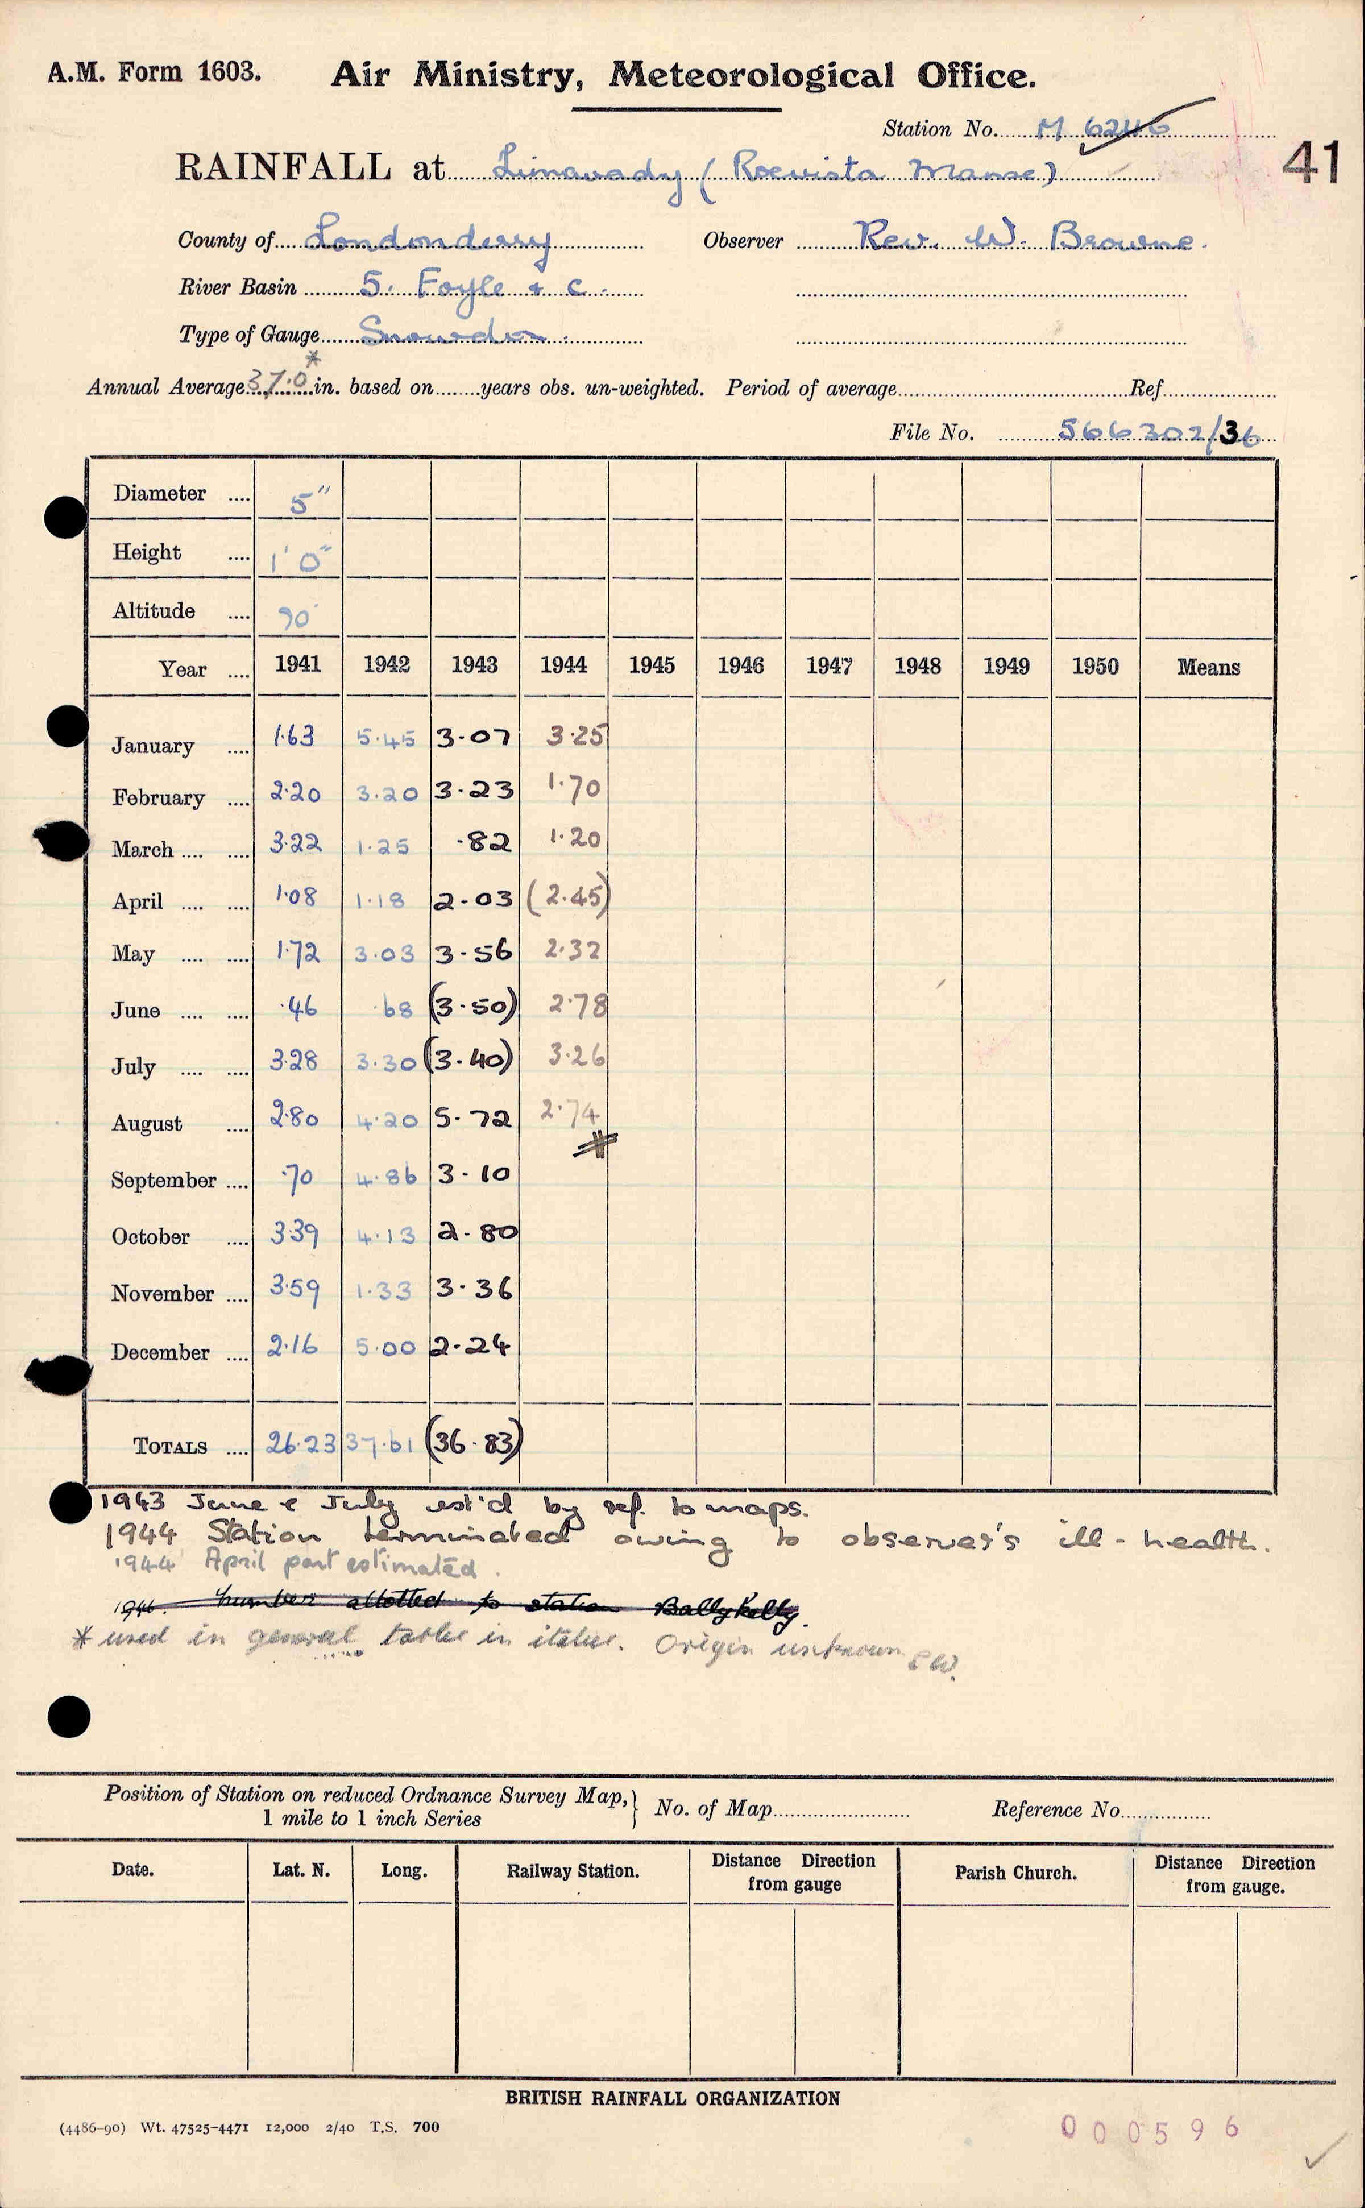 A.M. Form 1603. Air Ministry, Meteorological Office.
Station No. M 6246
41
RAINFALL at Limavady (Roevista Manse)
County of Londonderry Observer Rev. W. Browne.
River Basin 5. Foyle & c.
Type of Gauge Snowdon.
Annual Average 37.0* in. based on years obs. un-weighted. Period of average Ref.
File No. 566302/36
Diameter .... 5"
Height .... 1' 0"
Altitude .... 90'
Year .... 1941 1942 1943 1944 1945 1946 1947 1948 1949 1950 Means
January .... 1.63 5.45 3.07 3.25
February .... 2.20 3.20 3.23 1.70
March .... .... 3.22 1.25 .82 1.20
April .... .... 1.08 1.18 2.03 (2.45)
May .... .... 1.72 3.03 3.56 2.32
June .... .... .46 .68 (3.50) 2.78
July .... .... 3.28 3.30 (3.40) 3.26
August .... 2.80 4.20 5.72 2.74
September .... .70 4.86 3.10
October .... 3.39 4.13 2.80
November .... 3.59 1.33 3.36
December .... 2.16 5.00 2.24
TOTALS .... 26.23 37.61 (36.83)
1943 June & July est'd by ref. to maps.
1944 Station terminated owing to observer's ill-health.
1944 April part estimated.
1946. Number allotted to station Ballykelly.
* used in general table in italic. Origin unknown E.W.
Position of Station on reduced Ordnance Survey Map, 1 mile to 1 inch Series } No. of Map Reference No.
Date. Lat. N. Long. Railway Station. Distance Direction from gauge Parish Church. Distance Direction from gauge.
BRITISH RAINFALL ORGANIZATION
(4486-90) Wt. 47525-4471 12,000 2/40 T.S. 700
000596